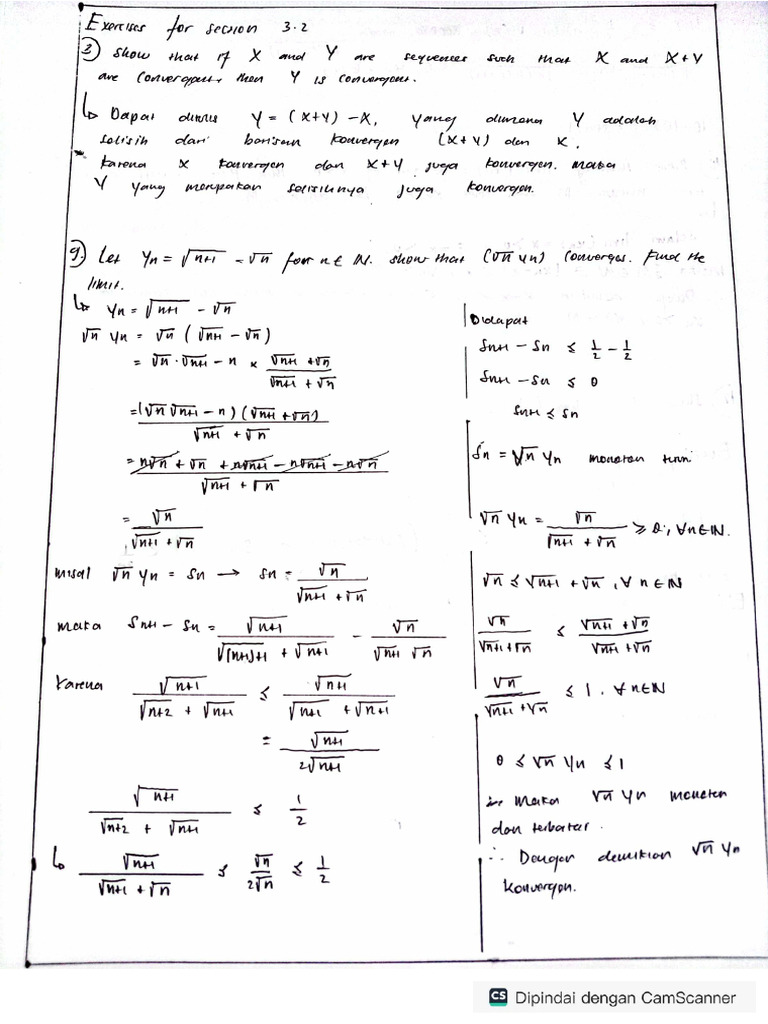 Exercises for section 3.2
3) Show that if X and Y are sequences such that X and X+Y
are convergent, then Y is convergent.
↳ Dapat ditulis Y = (X+Y) - X, yang dimana Y adalah
selisih dari barisan konvergen (X+Y) dan X.
karena X konvergen dan X+Y juga konvergen. maka
Y yang merupakan selisihnya juga konvergen.
9.) Let Yn = √n+1 - √n for n ∈ IN. show that (√n yn) converges. Find the
limit.
↳ Yn = √n+1 - √n
√n Yn = √n (√n+1 - √n)
= √n · √n+1 - n × (√n+1 + √n)/(√n+1 + √n)
= (√n √n+1 - n) (√n+1 + √n) / (√n+1 + √n)
= n√n + √n + n√n+1 - n√n+1 - n√n / (√n+1 + √n)
= √n / (√n+1 + √n)
misal √n yn = Sn → Sn = √n / (√n+1 + √n)
maka Sn+1 - Sn = √n+1 / (√(n+1)+1 + √n+1) - √n / (√n+1 √n)
karena √n+1 / (√n+2 + √n+1) ≤ √n+1 / (√n+1 + √n+1)
= √n+1 / 2√n+1
√n+1 / (√n+2 + √n+1) ≤ 1/2
↳ √n+1 / (√n+1 + √n) ≤ √n / 2√n ≤ 1/2
Didapat
Sn+1 - Sn ≤ 1/2 - 1/2
Sn+1 - Sn ≤ 0
Sn+1 ≤ Sn
Sn = √n Yn monoton turun
√n Yn = √n / (√n+1 + √n) ≥ 0, ∀n∈IN.
√n ≤ √n+1 + √n, ∀ n ∈ IN
√n / (√n+1 + √n) ≤ (√n+1 + √n) / (√n+1 + √n)
√n / (√n+1 + √n) ≤ 1. ∀ n∈IN
0 ≤ √n Yn ≤ 1
∴ Maka √n Yn monoton
dan terbatas.
∴ Dengan demikian √n Yn
konvergen.
CS Dipindai dengan CamScanner